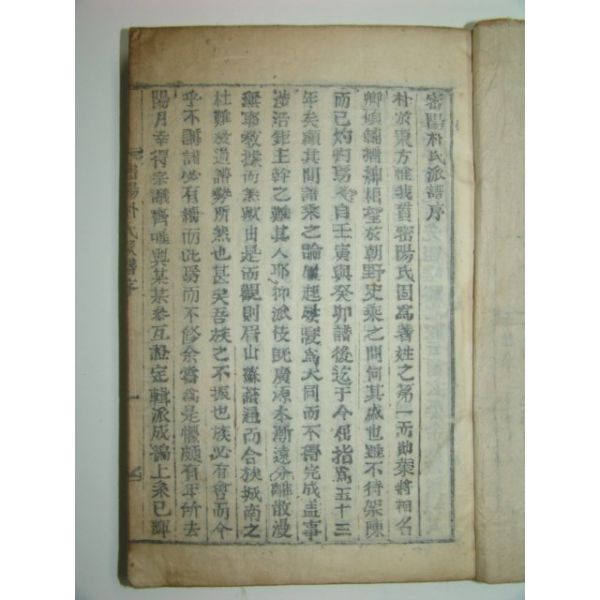 密陽朴氏派譜序
朴於東方惟我貫密陽氏固爲著姓之第一而即葉將相名
卿娘輔譜紳相望於朝野史乘之間何其盛也雖不待架陳
而已灼灼焉自壬寅與癸卯譜後迄于今屈指爲五十三
年矣顧其間譜乘之論屢起爲大同而不得完成盖事
涉浩鉅主幹之難其人耶抑派枝旣廣源本漸遠分離散漫
無而無由是而觀則眉山蘇譜過而合族城南之
杜難於通譜勢所然也甚矣吾族之不振也族必有會而今
乎不講譜必有續而此焉而不修余嘗爲是懼頗有年所去
陽月幸得宗議齊唯與某某參互證定輯派成篇上系已詳
密陽朴氏派譜序
一